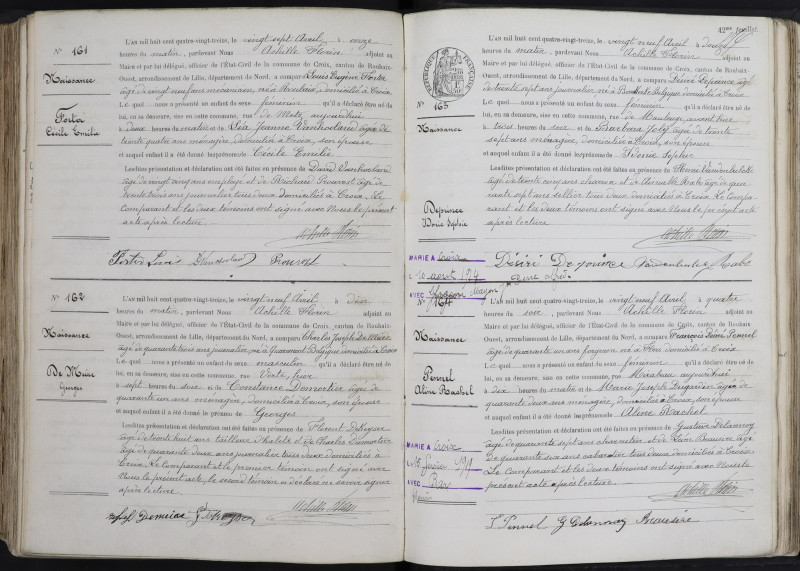 N° 161
Naissance
Forter
Cécile Emilie
L'AN mil huit cent quatre-vingt-treize, le vingt sept Avril à onze
heures du matin, pardevant Nous Achille Florin adjoint au
Maire et par lui délégué, officier de l'État-Civil de la commune de Croix, canton de Roubaix-
Ouest, arrondissement de Lille, département du Nord, a comparu Louis Eugène Forter
âgé de vingt neuf ans né à domicilié à Croix
Lequel nous a présenté un enfant du sexe féminin qu'il a déclaré être né de
lui, en sa demeure, sise en cette commune, rue de Metz, aujourd'hui
à deux heures du matin et de Jeanne Vanhoeland âgée de
trente quatre ans ménagère, domiciliée à Croix, son épouse
et auquel enfant il a été donné les prénoms de Cécile Emilie
Lesdites présentation et déclaration ont été faites en présence de David Vanhoeland
âgé de vingt cinq ans employé et de Richard Prouvost âgé de
trente trois ans journalier tous deux domiciliés à Croix. Le
Comparant et les deux témoins ont signé avec Nous le présent
acte après lecture.
Achille Florin
Forter Louis Prouvost
N° 162
Naissance
De Mûre
Georges
L'AN mil huit cent quatre-vingt-treize, le vingt neuf Avril à dix
heures du matin, pardevant Nous Achille Florin adjoint au
Maire et par lui délégué, officier de l'État-Civil de la commune de Croix, canton de Roubaix-
Ouest, arrondissement de Lille, département du Nord, a comparu Charles Joseph
âgé de quarante trois ans journalier né à Belgique domicilié à Croix
Lequel nous a présenté un enfant du sexe masculin qu'il a déclaré être né de
lui, en sa demeure, sise en cette commune, rue hier
à sept heures du soir et de Constance Demortier âgée de
quarante un ans ménagère, domiciliée à Croix, son épouse
et auquel enfant il a été donné le prénom de Georges
Lesdites présentation et déclaration ont été faites en présence de Florent
âgé de trente huit ans tailleur d'habits et de Charles Dumortier
âgé de quarante deux ans journalier tous deux domiciliés à
Croix. Le comparant et le premier témoin ont signé avec
Nous le présent acte, le second témoin a déclaré ne savoir signer
après lecture.
Achille Florin
42me feuillet.
RÉPUBLIQUE FRANÇAISE
N° 163
Naissance
Deprince
Sophie
L'AN mil huit cent quatre-vingt-treize, le vingt neuf Avril à douze
heures du matin, pardevant Nous Achille Florin adjoint au
Maire et par lui délégué, officier de l'État-Civil de la commune de Croix, canton de Roubaix-
Ouest, arrondissement de Lille, département du Nord, a comparu Désiré Deprince âgé
de trente sept ans journalier né à Belgique domicilié à Croix
Lequel nous a présenté un enfant du sexe féminin qu'il a déclaré être né de
lui, en sa demeure, sise en cette commune, rue de Maubeuge avant hier
à trois heures du soir et de Barbara Joly âgée de trente
sept ans ménagère, domiciliée à Croix, son épouse
et auquel enfant il a été donné les prénoms de Sophie
Lesdites présentation et déclaration ont été faites en présence de Henri
âgé de trente cinq ans et de âgé de
sept ans sellier tous deux domiciliés à Croix. Le compa-
rant et les deux témoins ont signé avec Nous le présent acte
après lecture.
Achille Florin
MARIÉ A Croix
Le 10 août 1914
AVEC
Désiré Deprince
N° 164
Naissance
Pennel
Aline Rachel
L'AN mil huit cent quatre-vingt-treize, le vingt neuf Avril à quatre
heures du soir, pardevant Nous Achille Florin adjoint au
Maire et par lui délégué, officier de l'État-Civil de la commune de Croix, canton de Roubaix-
Ouest, arrondissement de Lille, département du Nord, a comparu François Pennel
âgé de quarante un ans forgeron né à Flers domicilié à Croix
Lequel nous a présenté un enfant du sexe féminin qu'il a déclaré être né de
lui, en sa demeure, sise en cette commune, rue Mirabeau aujourd'hui
à dix heures du matin et de Marie Joseph âgée de
quarante deux ans ménagère, domiciliée à Croix, son épouse
et auquel enfant il a été donné les prénoms de Aline Rachel
Lesdites présentation et déclaration ont été faites en présence de Gustave Delannoy
âgé de quarante sept ans charretier et de âgé
de quarante six ans cabaretier tous deux domiciliés à Croix
Le Comparant et les deux témoins ont signé avec Nous le
présent acte après lecture.
Achille Florin
MARIÉ A Croix
AVEC
Pennel G Delannoy